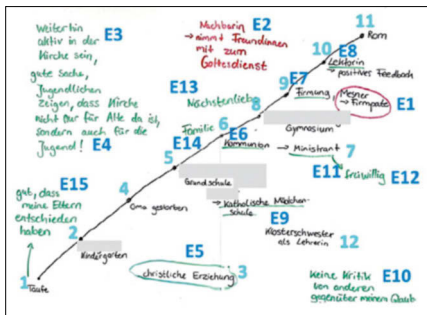 Weiterhin
aktiv in der
Kirche sein,
gute Sache,
Jugendlichen
zeigen, dass Kirche
nicht nur für Alte da ist,
sondern auch für die
Jugend!
E3
E4
Nachbarin E2
→ nimmt Freundinnen
mit zum
Gottesdienst
11
Rom
10 E8
Lektorin
→ positives Feedback
9 E7
Firmung, Mesner
→ Firmpate
E1
E13
Nächstenliebe
8
Gymnasium
Familie
6 E6
Kommunion → Ministrant
7
E11 freiwillig E12
E14
5
Grundschule
→ katholische Mädchen-
schule
E9
Klosterschwester
als Lehrerin
12
E15
gut, dass
meine Eltern
entschieden
haben
4
Oma gestorben
2
Kindergarten
E5
christliche Erziehung 3
1 Taufe
keine Kritik E10
von anderen
gegenüber meinem Glaub